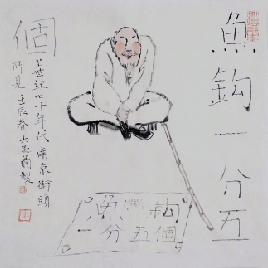 魚鈎一分五
個
上世紀七十年代街頭
所見 壬辰春
魚鈎
一分五個